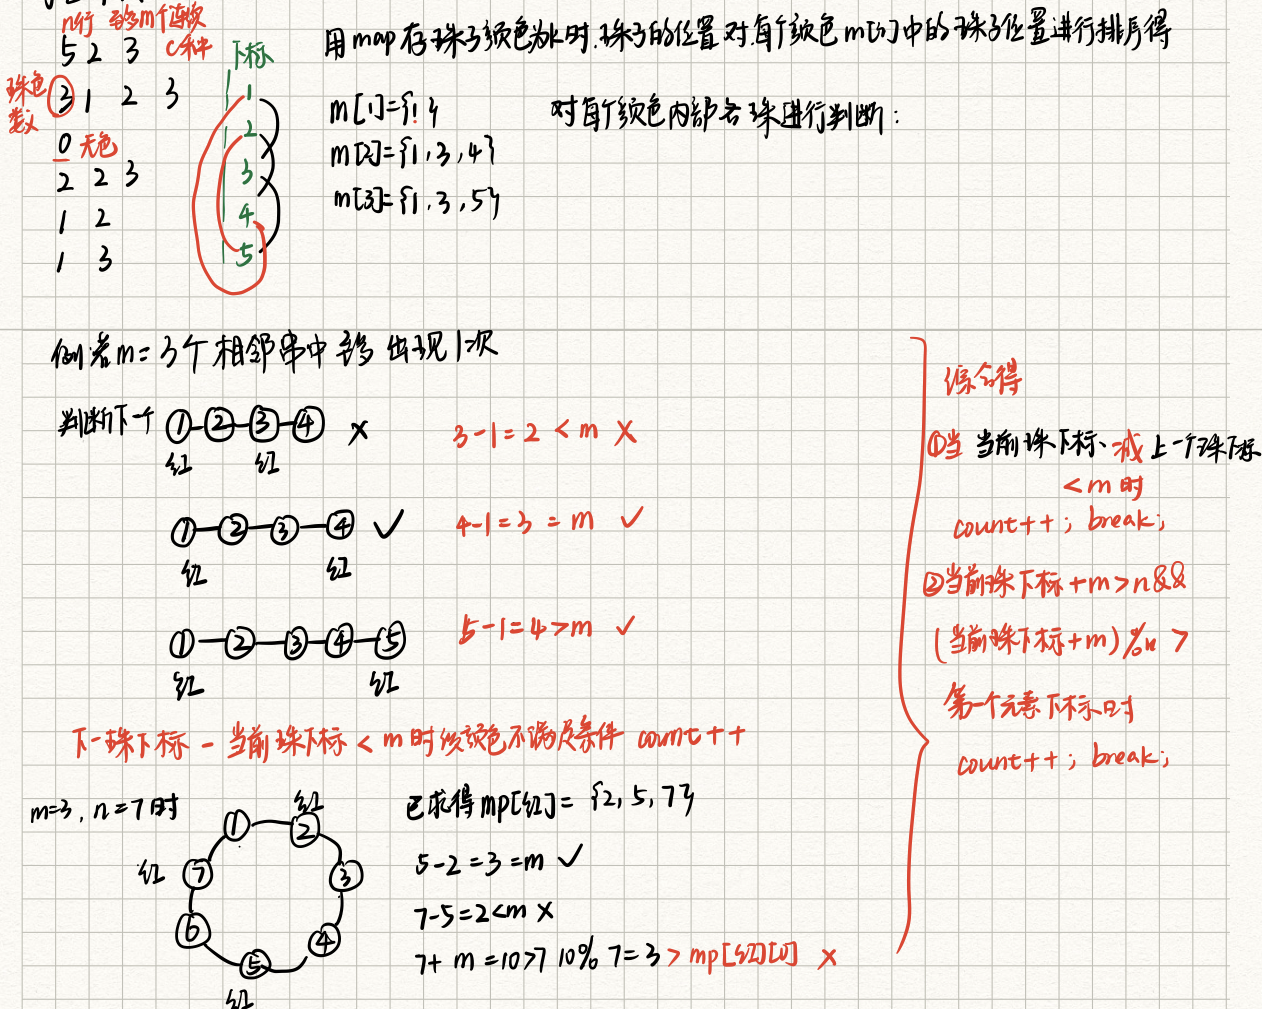 n行 至多m个连续
5 2 3 c种
下标
珠色数 3 1 2 3
0 无色
2 2 3
1 2
1 3
1
2
3
4
5
用map存珠子颜色为k时.珠子的位置 对每个颜色m[i]中的珠子位置进行排序得
m[1]={1}
m[2]={1,3,4}
m[3]={1,3,5}
对每个颜色内部各珠进行判断:
例若m=3个相邻串中至多出现1次
判断下一个 ①-②-③-④ ×
红 红
3-1=2<m ×
①-②-③-④ ✓
红 红
4-1=3=m ✓
①-②-③-④-⑤
红 红
5-1=4>m ✓
下一珠下标-当前珠下标<m时该颜色不满足条件 count++
m=3,n=7时
红
① ②
红 ⑦ ③
⑥ ④
⑤
红
已求得mp[红]={2,5,7}
5-2=3=m ✓
7-5=2<m ×
7+m=10>7 10%7=3>mp[红][0] ×
综合得
①当 当前珠下标、减上一个珠下标
<m时
count++; break;
②当前珠下标+m>n&&
(当前珠下标+m)%n>
第一个元素下标时
count++; break;